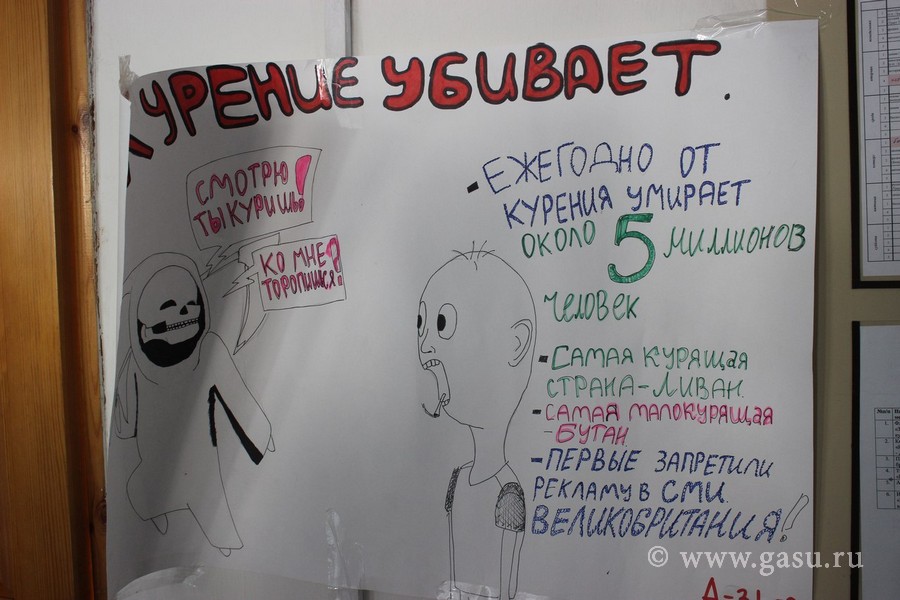 КУРЕНИЕ УБИВАЕТ.
СМОТРЮ
ТЫ КУРИШЬ!
КО МНЕ
ТОРОПИШЬСЯ?
- ЕЖЕГОДНО ОТ
КУРЕНИЯ УМИРАЕТ
ОКОЛО 5 МИЛЛИОНОВ
ЧЕЛОВЕК
- САМАЯ КУРЯЩАЯ
СТРАНА-ЛИВАН.
- САМАЯ МАЛОКУРЯЩАЯ
- БУТАН.
- ПЕРВЫЕ ЗАПРЕТИЛИ
РЕКЛАМУ В СМИ.
ВЕЛИКОБРИТАНИЯ!
© www.gasu.ru